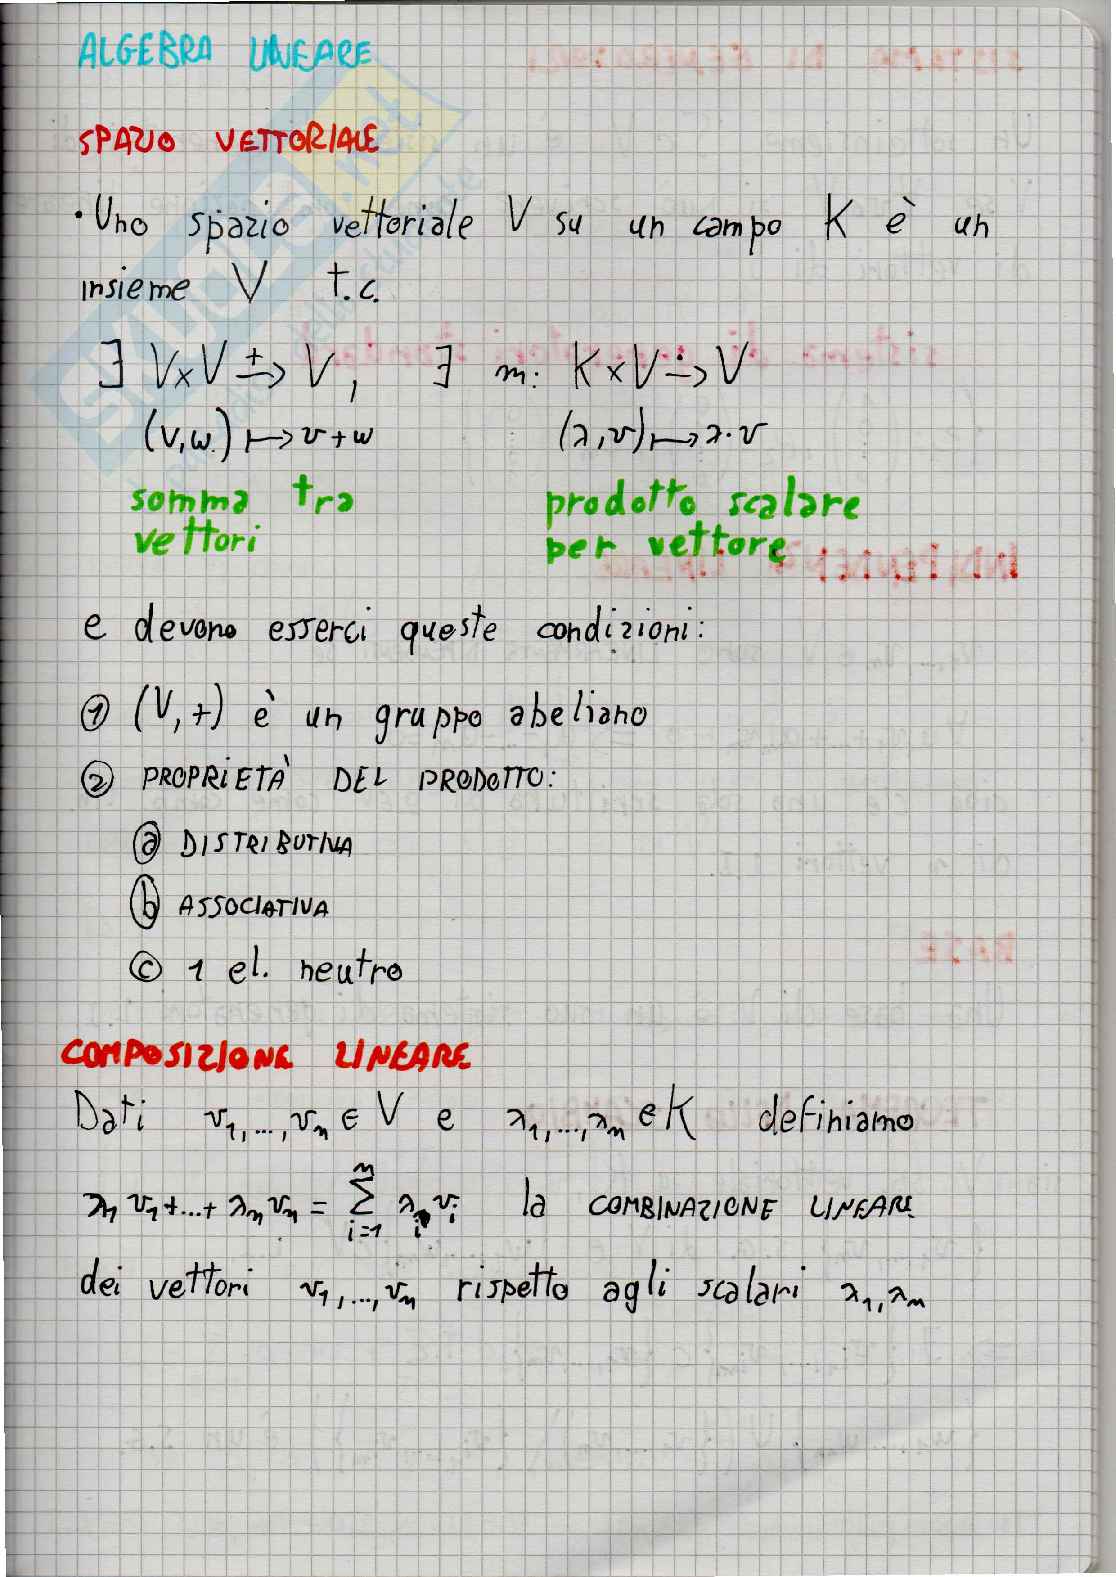 ALGEBRA LINEARE
SPAZIO VETTORIALE
• Uno spazio vettoriale V su un campo K è un
insieme V t.c.
∃ V×V +→ V, ∃ m: K×V ·→ V
(v,w) ↦ v+w (λ,v) ↦ λ·v
somma tra prodotto scalare
vettori per vettore
e devono esserci queste condizioni:
① (V,+) è un gruppo abeliano
② PROPRIETÀ DEL PRODOTTO:
ⓐ DISTRIBUTIVA
ⓑ ASSOCIATIVA
ⓒ 1 el. neutro
COMPOSIZIONE LINEARE
Dati v₁,...,vₙ ∈ V e λ₁,...,λₙ ∈ K definiamo
λ₁v₁+...+λₙvₙ = ∑ⁿᵢ₌₁ λᵢvᵢ la COMBINAZIONE LINEARE
dei vettori v₁,...,vₙ rispetto agli scalari λ₁,λₙ
SKUOLA.net